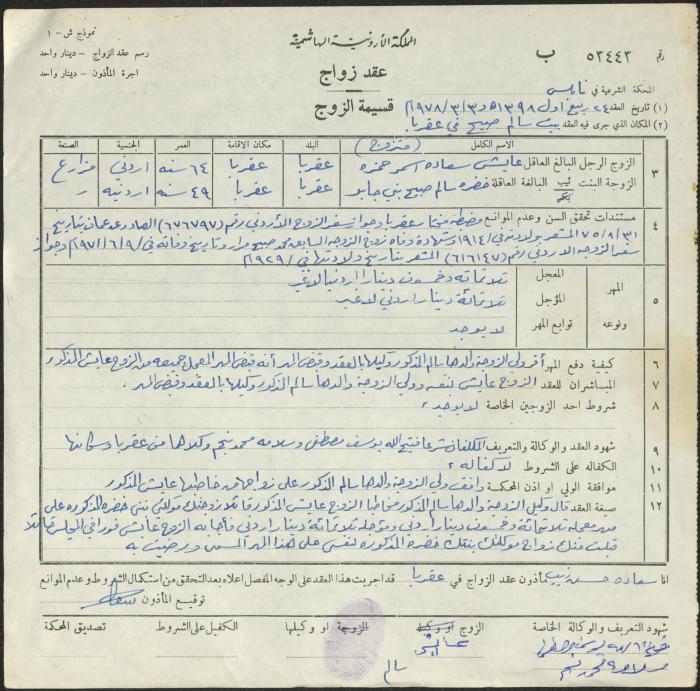 نموذج ش - ١
المملكة الأردنية الهاشمية
رقم ٥٣٤٤٣ ب
رسم عقد الزواج - دينار واحد
اجرة المأذون - دينار واحد
عقد زواج
قسيمة الزوج
المحكمة الشرعية في نابلس
(١) تاريخ العقد ٢٤ ربيع اول ١٣٩٨ هـ و ٣/٣/١٩٧٨م
(٢) المكان الذي جرى فيه العقد بيت سالم صبيح في عقربا
الاسم الكامل (متزوج) البلد مكان الاقامة العمر الجنسية الصنعة
٣ الزوج الرجل البالغ العاقل عايش سعاده اسمر حمزه عقربا عقربا ٦٤ سنه اردني مزارع
الزوجة البنت ثيب بكر البالغة العاقلة خضره سالم صبيح بني جابر عقربا عقربا ٤٩ سنه اردنيه
٤ مستندات تحقق السن وعدم الموانع مضبطة مختار عقربا وجواز سفر الزوج الأردني رقم (٦٧٦٧٩٧) الصادر عمان بتاريخ
٣١/٨/٧٥ المشعر بولادته في/١٩١٤ وشهادة وفاة زوج الزوجه السابق محمد صبيح وتاريخ وفاته في/٩/٦/١٩٧١ وجواز
سفر الزوجه الاردني رقم (٦١٦١٤٧) المشعر بتاريخ ولادتها في/١٩٢٩م
٥ المهر ونوعه
المعجل ثلاثمائه وخمسون دينارا اردنيا لاغير
المؤجل ثلاثمائة دينار اردني لاغير
توابع المهر لا يوجد
٦ كيفية دفع المهر أقر ولي الزوجة والدها سالم المذكور وكيلها بالعقد وقبض المهر أنه قبض المهر المعجل جميعه من الزوج عايش المذكور
٧ المباشران للعقد الزوج عايش بنفسه وولي الزوجة والدها سالم المذكور وكيلها بالعقد وقبض المهر.
٨ شروط احد الزوجين الخاصة لا يوجد
٩ شهود العقد والوكالة والتعريف المكلفان شرعا فتح الله يوسف مصطفى وسلامه محمد نجم وكلاهما من عقربا وسكانها
١٠ الكفاله على الشروط لا كفاله
١١ موافقة الولي او اذن المحكمة وافق ولي الزوجة والدها سالم المذكور على زواجها من خاطبها عايش المذكور
١٢ صيغة العقد قال وكيل الزوجة والدها سالم المذكور مخاطبا الزوج عايش المذكور قائلا زوجتك موكلتي بنتي خضره المذكوره على
مهر معجله ثلاثمائة وخمسون دينار اردني ومؤجله ثلاثمائة دينار اردني فأجابه الزوج عايش فورا في المجلس قائلا
قبلت منك زواج موكلتك بنتك خضرة المذكوره لنفسي على هذا المهر المسمى ورضيت به
انا سعاده حسن ذيب مأذون عقد الزواج في عقربا قد اجريت هذا العقد على الوجه المفصل اعلاه بعد التحقق من استكمال الشروط وعدم الموانع
توقيع المأذون
شهود التعريف والوكالة الخاصة الزوج او وكيله الزوجة او وكيلها الكفيل على الشروط تصديق المحكمة
عايش
سالم